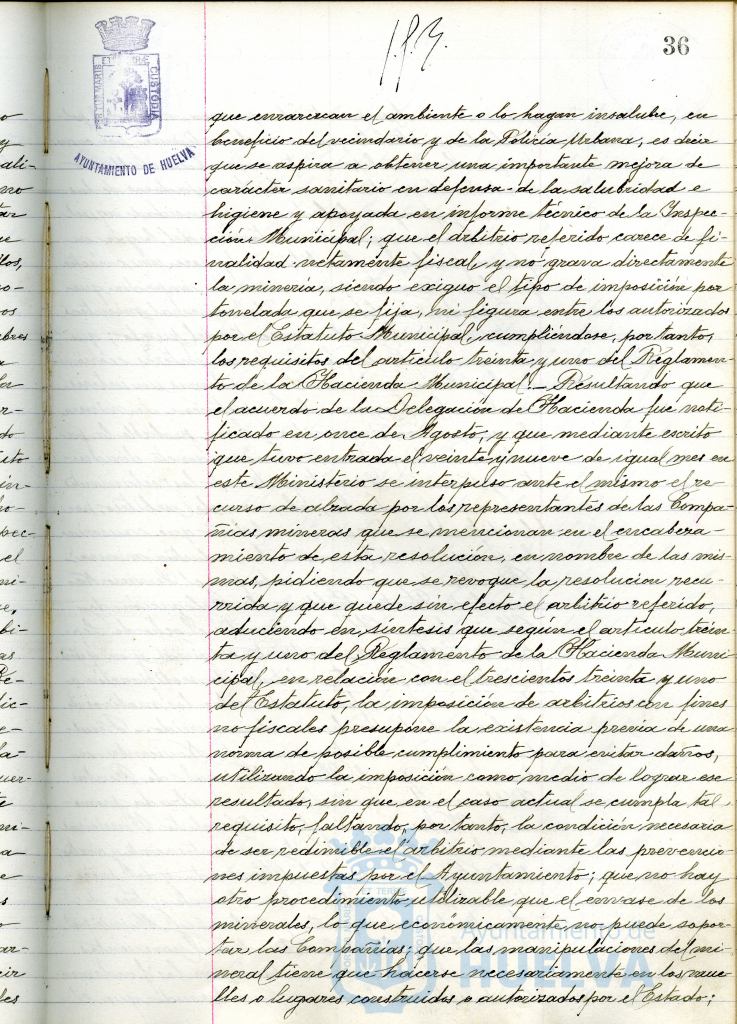 36
PORTUS MARIS ET TERRE CUSTODIA
AYUNTAMIENTO DE HUELVA
que enrarezcan el ambiente o lo hagan insalubre, en
beneficio del vecindario y de la Policía Urbana, es decir
que se aspira a obtener una importante mejora de
carácter sanitario en defensa de la salubridad e
higiene y apoyada en informe técnico de la Inspec-
ción Municipal; que el arbitrio referido carece de fi-
nalidad netamente fiscal, y no grava directamente
la minería, siendo exiguo el tipo de imposición por
tonelada que se fija, ni figura entre los autorizados
por el Estatuto Municipal, cumpliéndose, por tanto,
los requisitos del artículo treinta y uno del Reglamen-
to de la Hacienda Municipal.- Resultando que
el acuerdo de la Delegación de Hacienda fue noti-
ficado en once de Agosto, y que mediante escrito
que tuvo entrada el veinte y nueve de igual mes en
este Ministerio se interpuso ante el mismo el re-
curso de alzada por los representantes de las Compa-
ñías mineras que se mencionan en el encabeza-
miento de esta resolución, en nombre de las mis-
mas, pidiendo que se revoque la resolución recu-
rrida y que quede sin efecto el arbitrio referido,
aduciendo en síntesis que según el artículo trein-
ta y uno del Reglamento de la Hacienda Muni-
cipal, en relación con el trescientos treinta y uno
del Estatuto, la imposición de arbitrios con fines
no fiscales presupone la existencia previa de una
norma de posible cumplimiento para evitar daños,
utilizando la imposición como medio de lograr ese
resultado, sin que en el caso actual se cumpla tal
requisito, faltando, por tanto, la condición necesaria
de ser redimible el arbitrio mediante las prevencio-
nes impuestas por el Ayuntamiento; que no hay
otro procedimiento utilizable que el envase de los
minerales, lo que económicamente no puede sopor-
tar las Compañías; que las manipulaciones del mi-
neral tiene que hacerse necesariamente en los mue-
lles o lugares construidos o autorizados por el Estado;
Ayuntamiento de
HUELVA